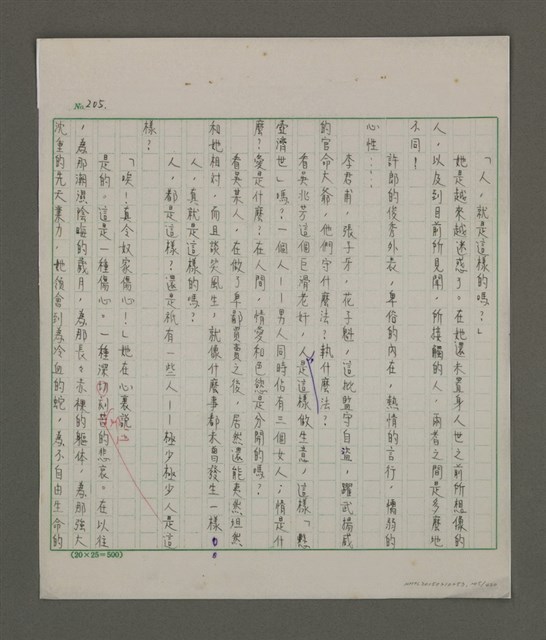 No. 205.
「人，就是這樣的嗎？」
她是越來越迷惑了。在她還未置身人世之前所想像的
人，以及到目前所見聞，所接觸的人，兩者之間是多麼地
不同！
許郎的俊秀外表，卑俗的內在，熱情的言行，懦弱的
心性……
李君甫，張子牙，花子魁，這批監守自盜，躍武揚威
的官命大爺，他們守什麼法？執什麼法？
看吳北芳這個巨滑老奸，人是這樣做生意，這樣「懸
壺濟世」嗎？一個人——男人同時佔有三個女人；情是什
麼？愛是什麼？在人間，情愛和色慾是分開的嗎？
看吳某人，在做了卑鄙買賣之後，居然還能夷然坦然
和她相對，而且談笑風生，就像什麼事都未曾發生一樣；
人，真就是這樣的嗎？
人，都是這樣？還是祇有一些人——極少極少人是這
樣？
「唉！真令奴家傷心！」她在心裏說。
是的。這是一種傷心。一種深切刻苦的悲哀。在以往
，為那潮濕陰晦的歲月，為那長長赤裸的軀体，為那強大
沈重的先天業力，她須會到為冷血的蛇，為不自由生命的
(20×25=500)